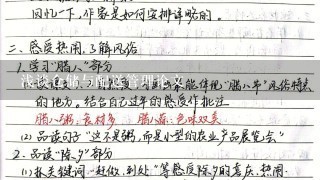 回忆一下，作家是如何安排详略的。
二、感受热闹，了解风俗
1.学习“腊八”部分
浅谈仓储与配送管理论文
能体现“腊八节”风俗特点
的地方。结合自己过年的感受作批注
腊八粥：食材多 腊八蒜：色味双美
(2)品读句子“这不是粥，而是小型的农业产品展览会”
2.品读“除夕”部分
(1)抓关键词“赶做、到处”等感受除夕的喜庆、热闹